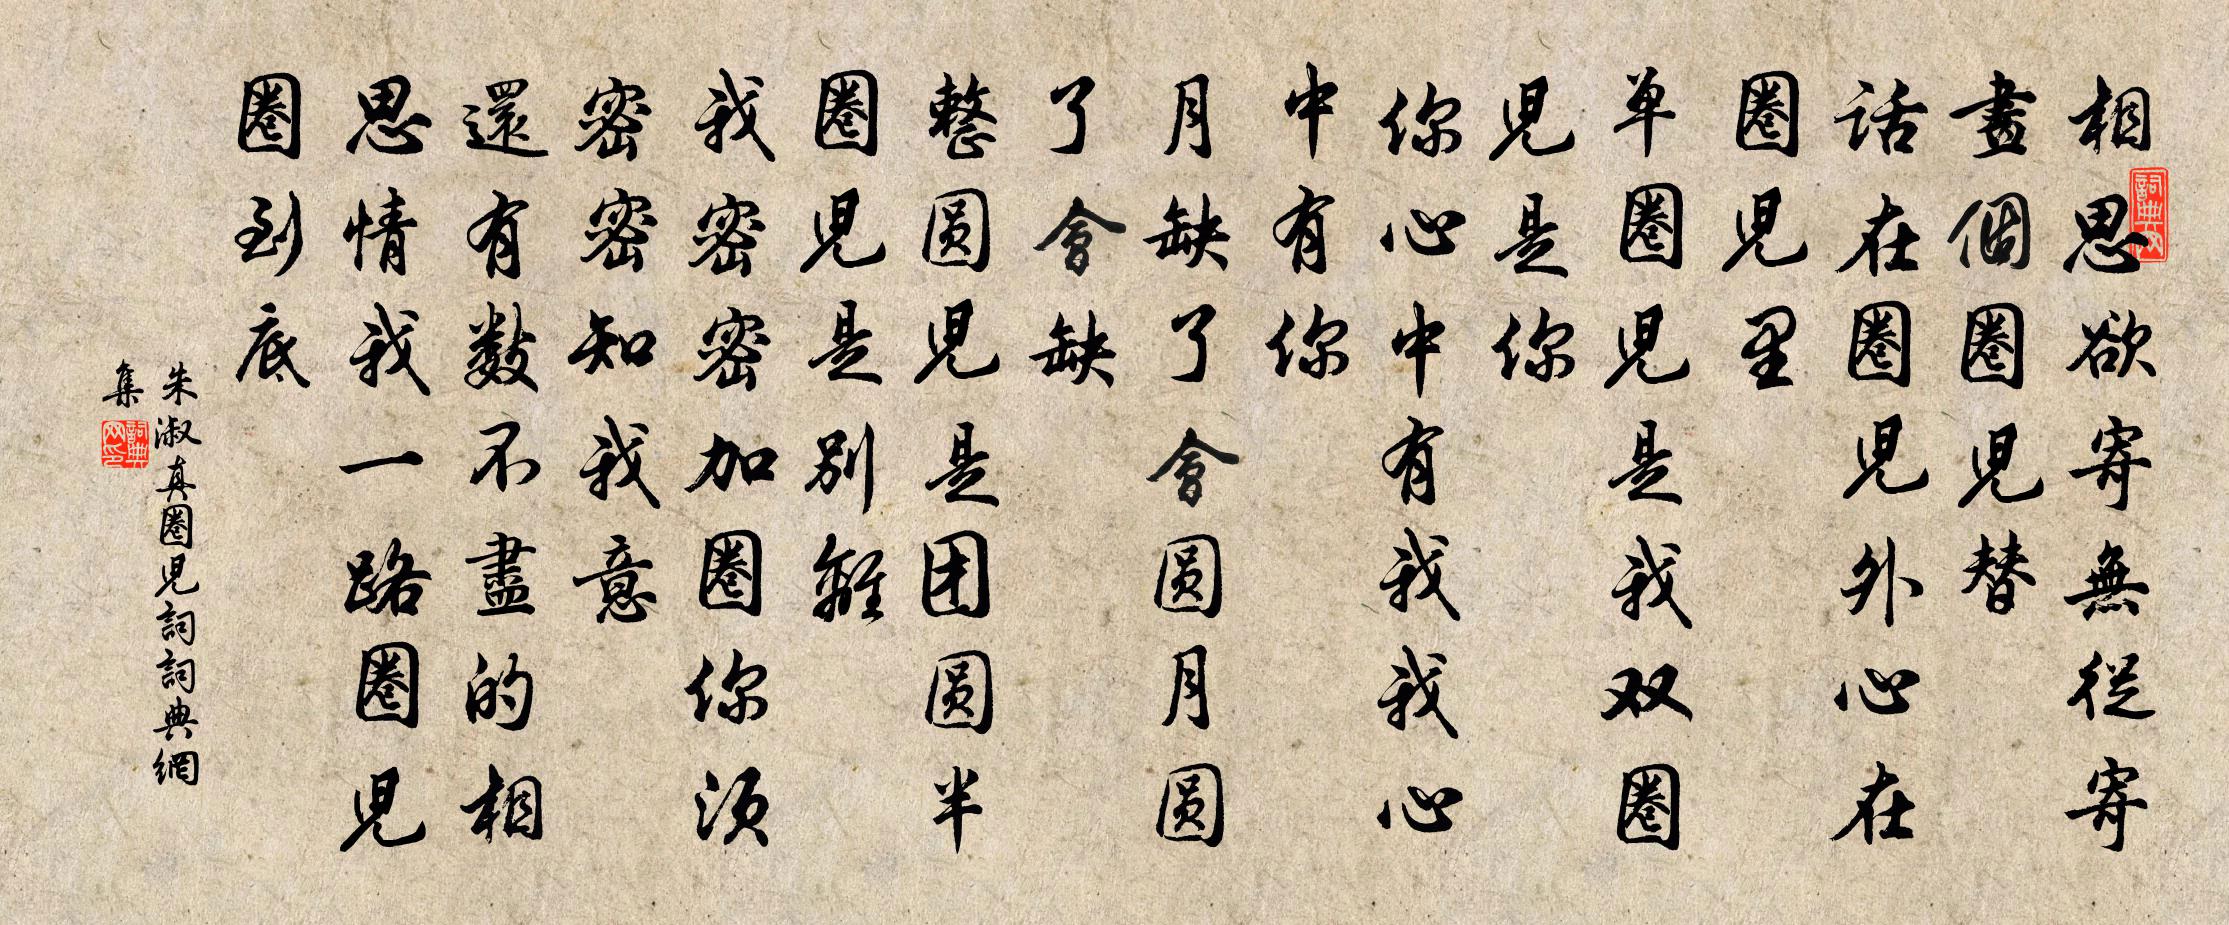 相思欲寄無從寄
畫個圈兒替
話在圈兒外心在
圈兒里
单圈兒是我双圈
兒是你
你心中有我我心
中有你
月缺了會圆月圆
了會缺
整圆兒是团圆半
圈兒是别離
我密密加圈你须
密密知我意
還有數不盡的相
思情我一路圈兒
圈到底
朱淑真圈兒詞詞典網
集
詞典网
詞典网印